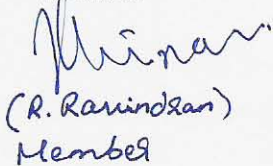 (R. Ravindran)
Member